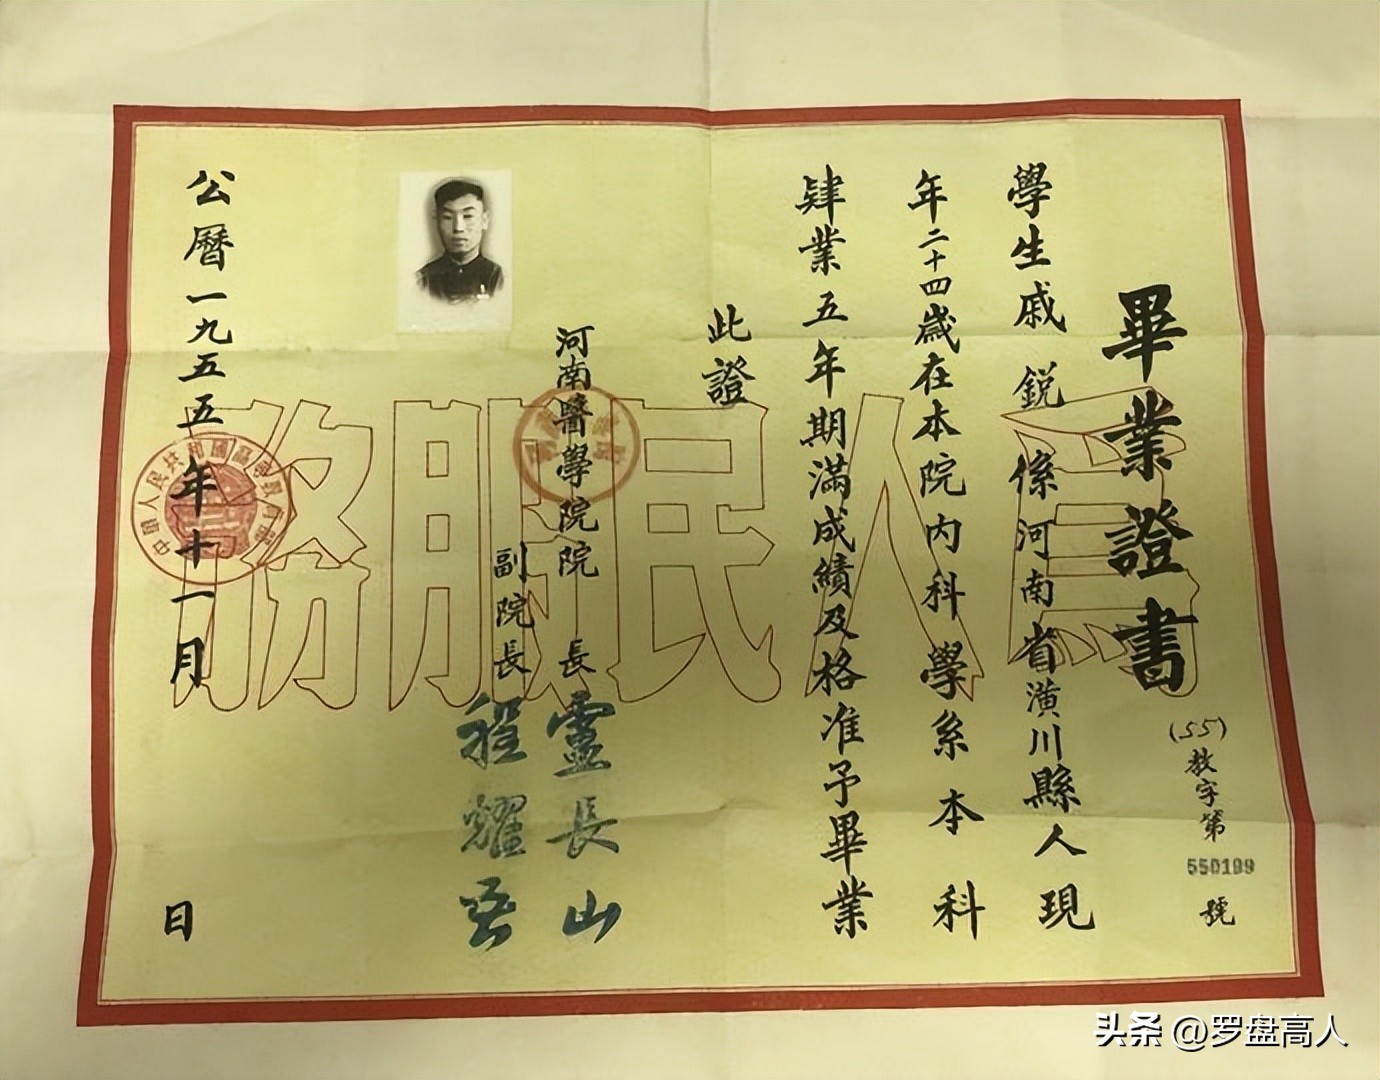 畢業證書
(55)教字第550199號
學生戚銳係河南省潢川縣人現
年二十四歲在本院內科學系本科
肄業五年期滿成績及格准予畢業
此證
河南醫學院院長靈長山
副院長程耀吾
公曆一九五五年十一月 日
為人民服務
中國人民共和國高等教育部
头条 @罗盘高人